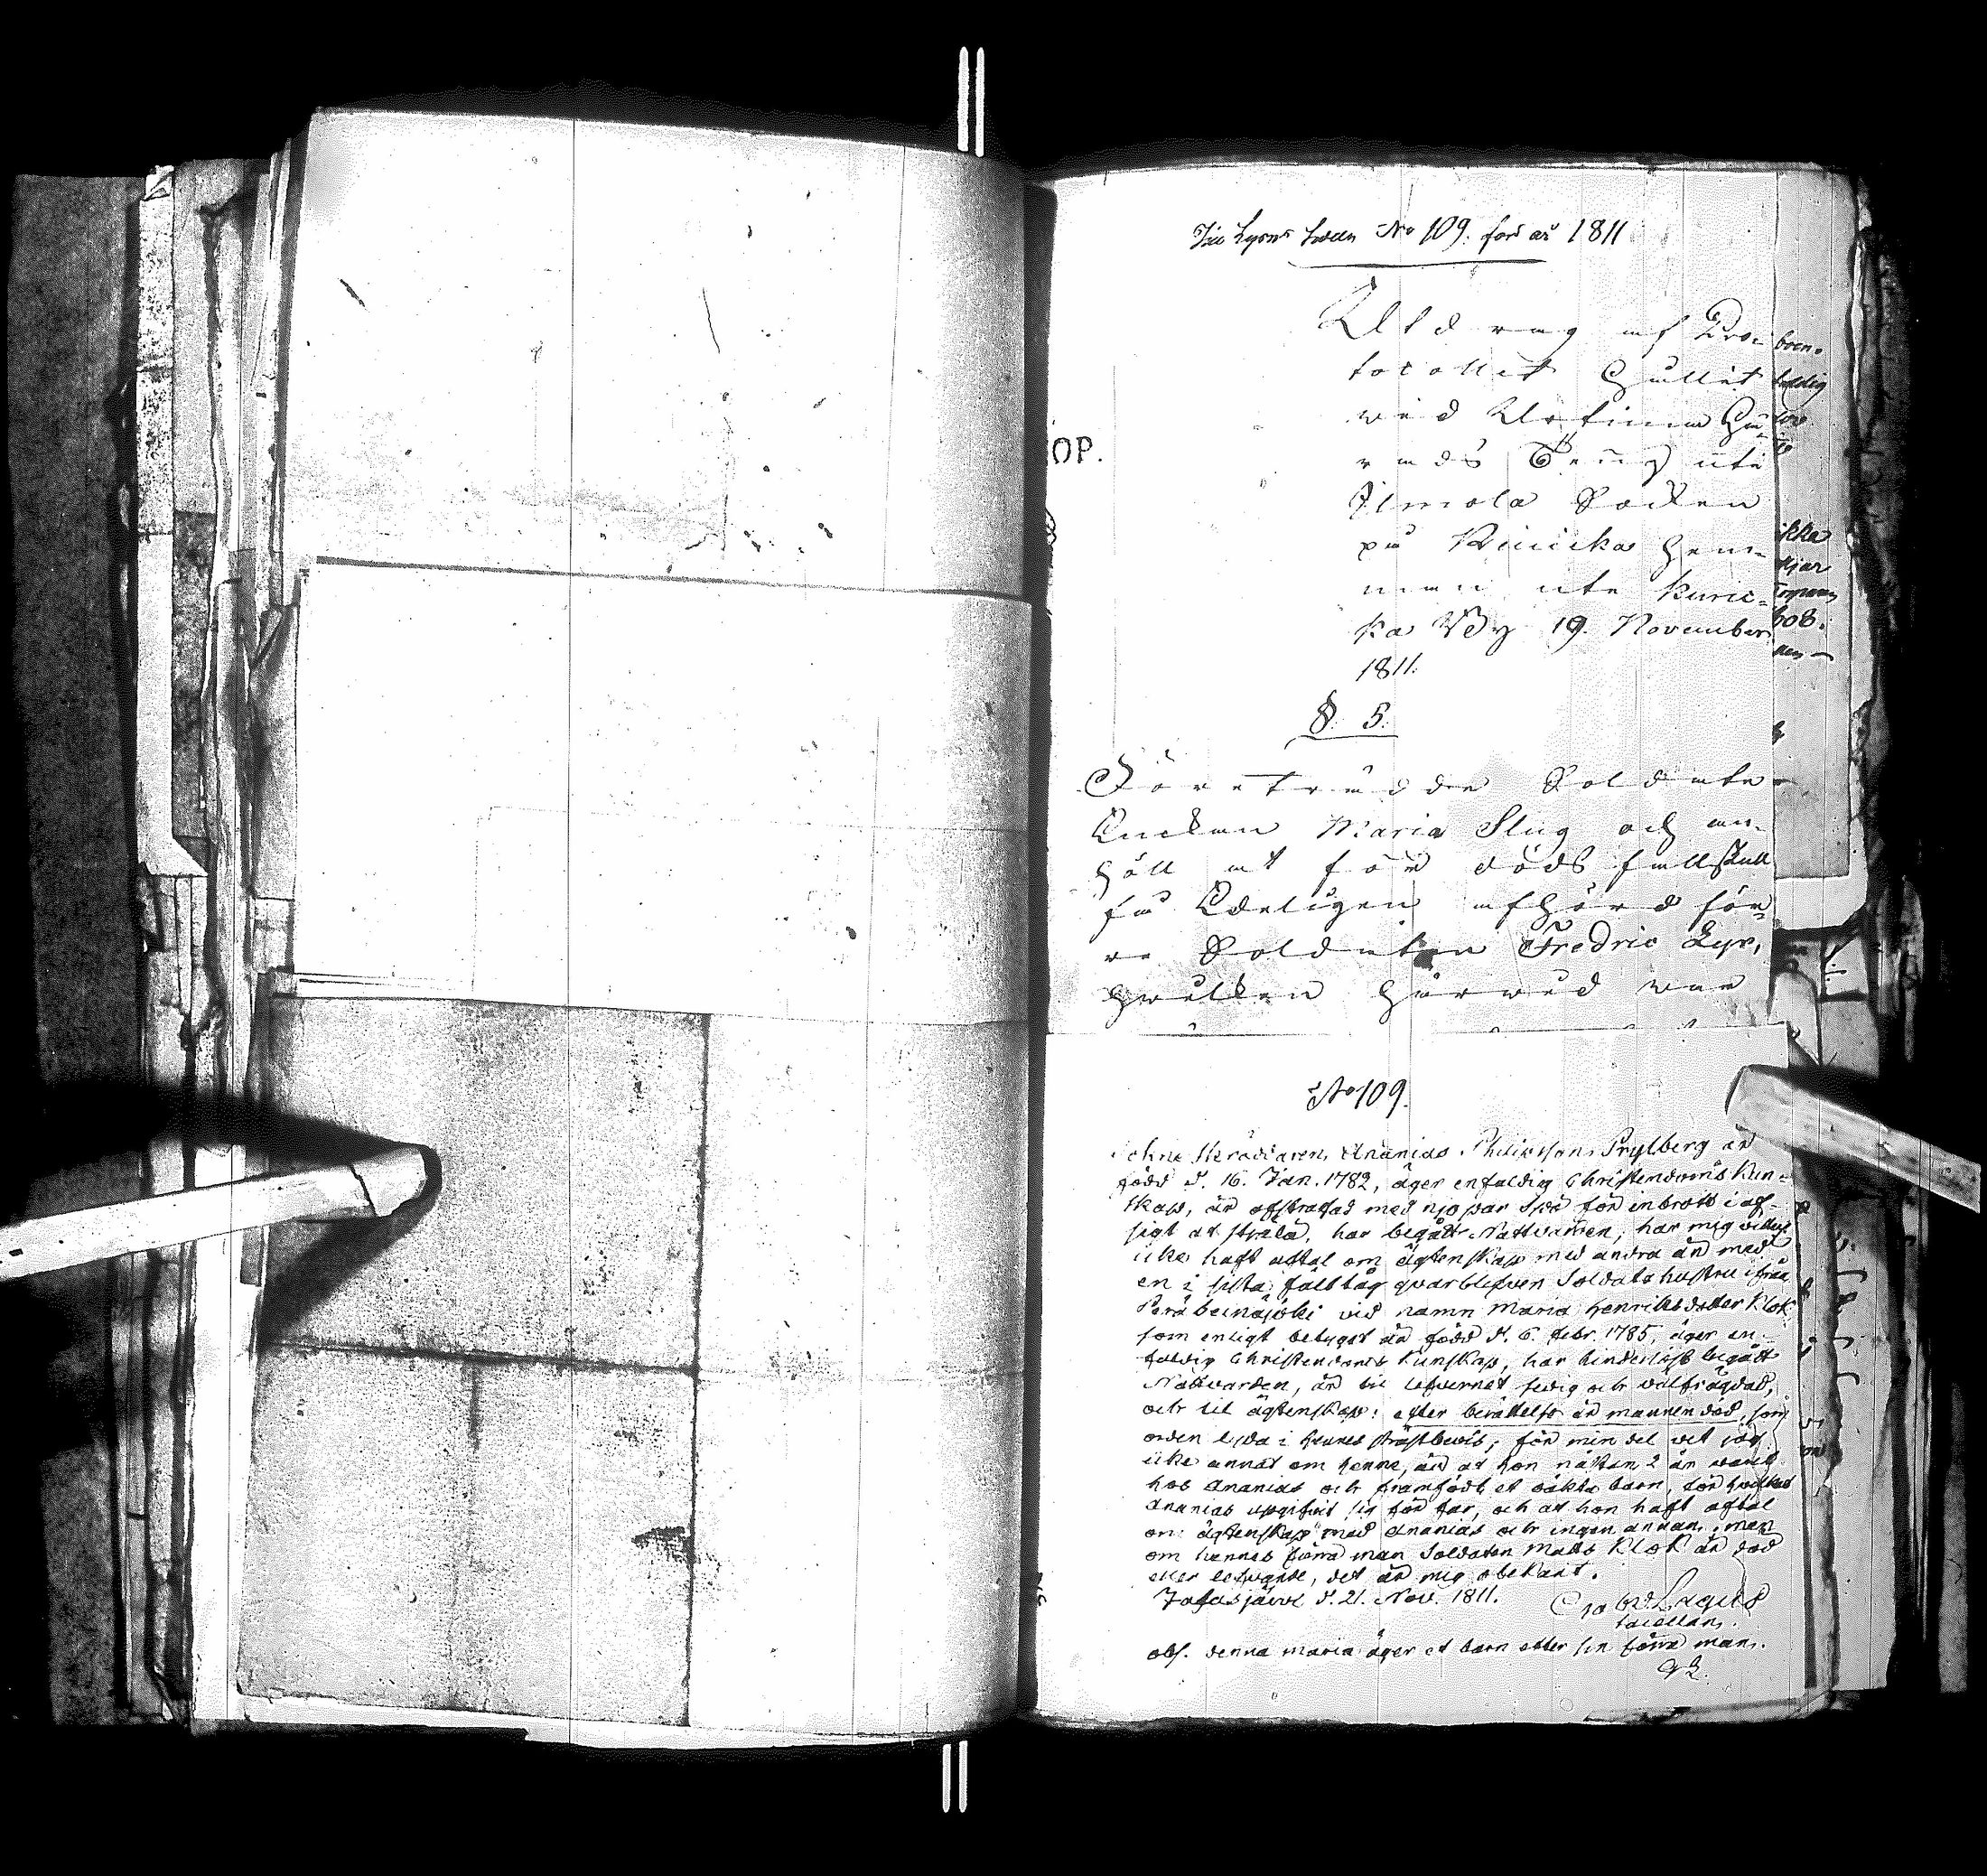 Til Lysns Sedeln No 109. för år 1811
Utdrag af Pro-
tocollet hållit
wid Urtima Hä-
rads Ting uti
Ilmola Socken
på Kuricka Hem-
man uti Kuric-
ka By 19. November
1811.
§. 5.
OP.
Företrädde Soldate
Enckan Maria Slug och an-
höll at för dödsfall skull
få Edeligen afhörd för-
re Soldaten Fredric Lyr,
hwilken härwid war
No 109.
Sokne Skräddaren, Ananias Philipsson Prylberg är
född d. 16. Jan. 1782, äger enfaldig Christendoms Kun-
skap, är afstraffad med njo par Spö för inbrott i af-
sigt at stjäla, har begått Nattvarden, har mig vetterl
icke haft aftal om ägtenskap med andra än med
en i sista fälttåg qvarblefven Soldats hustru ifrån
Peräseinäjoki vid namn Maria Henriksdotter Klok
som enligt betyget är född d. 6. febr. 1785, äger en-
faldig Christendoms Kunskap, har hinderlöst begått
Nattvarden, är til lefvernet sedig och wälfrägdad,
och til ägtenskap: efter berättelse är mannen död, som
orden lyda i hennes prästbevis; för min del vet jag
icke annat om henne, än at hon nästan 2 år warit
hos Ananias och framfödt et oäkta barn, för hvilket
Ananias uppgifvit sig för far, och at hon haft aftal
om ägtenskap med Ananias och ingen annan, men
om hennes förra man Soldaten Matts Klok är död
eller lefvande, det är mig obekant.
Jalasjärvi d. 21. Nov. 1811.
Sacellan.
obs. denna Maria äger et barn efter sin förra man.